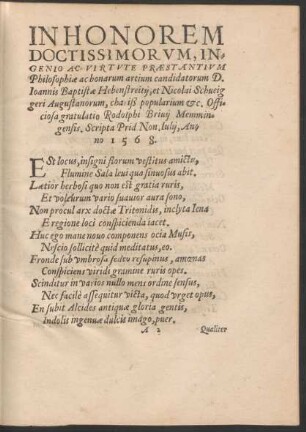 IN HONOREM
DOCTISSIMORVM, IN-
GENIO AC VIRTVTE PRÆSTANTIVM
Philosophiæ ac bonarum artium candidatorum D.
Ioannis Baptistæ Hebenstreitij, et Nicolai Schueig
geri Augustanorum, chariss popularium &c. Offi-
ciosa gratulatio Rodolphi Bruij Memmin-
gensis. Scripta Prid Non. Iulij, An-
no 1568.
EST locus, insigni florum vestitus amictu,
Flumine Sala leui quo sinuosus abit.
Lætior herboso quo non est gratia ruris,
Et volucrum vario suauior aura sono,
Non procul arx doctæ Tritonidis, inclyta Iena
E regione loci conspicienda iacet.
Huc ego mane nouo componens ocia Musis,
Nescio sollicitè quid meditatus, eo.
Fronde sub vmbrosa sedeo resupinus, amœnas
Conspiciens viridi gramine ruris opes.
Scinditur in varios nullo mens ordine sensus,
Nec facilè assequitur victa, quod vrget opus,
En subit Alcides antiquæ gloria gentis,
Indolis ingenuæ dulcis imago, puer.
A 2 Qualiter